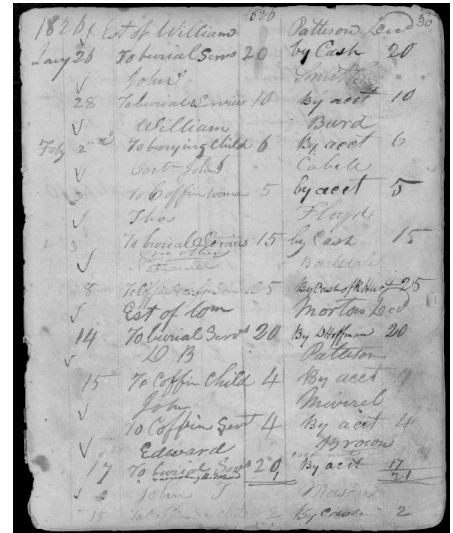 1826 Est of William 1826 Pattison Decd 30
Jany 26 To burial Servs 20 by Cash 20
John Smith
28 To burial Services 10 By acct 10
William Burd
Feby 2nd To burying Child 6 By acct 6
Doct John J Cabell
To Coffin woman 5 by acct 5
Thos Floyd
3 To burial Services 15 by Cash 15
Nathaniel Barksdale
8 25 By Cash of 25
Est of Com Mortons Decd
14 To burial Servs 20 By D Hoffman 20
D B Patteson
15 To Coffin Child 4 By acct 4
John
To Coffin Servt 4 By acct 4
Edward Brown
17 To burial Servs 20 By acct 17
21
John Mason
18 To Coffin 2 By 2